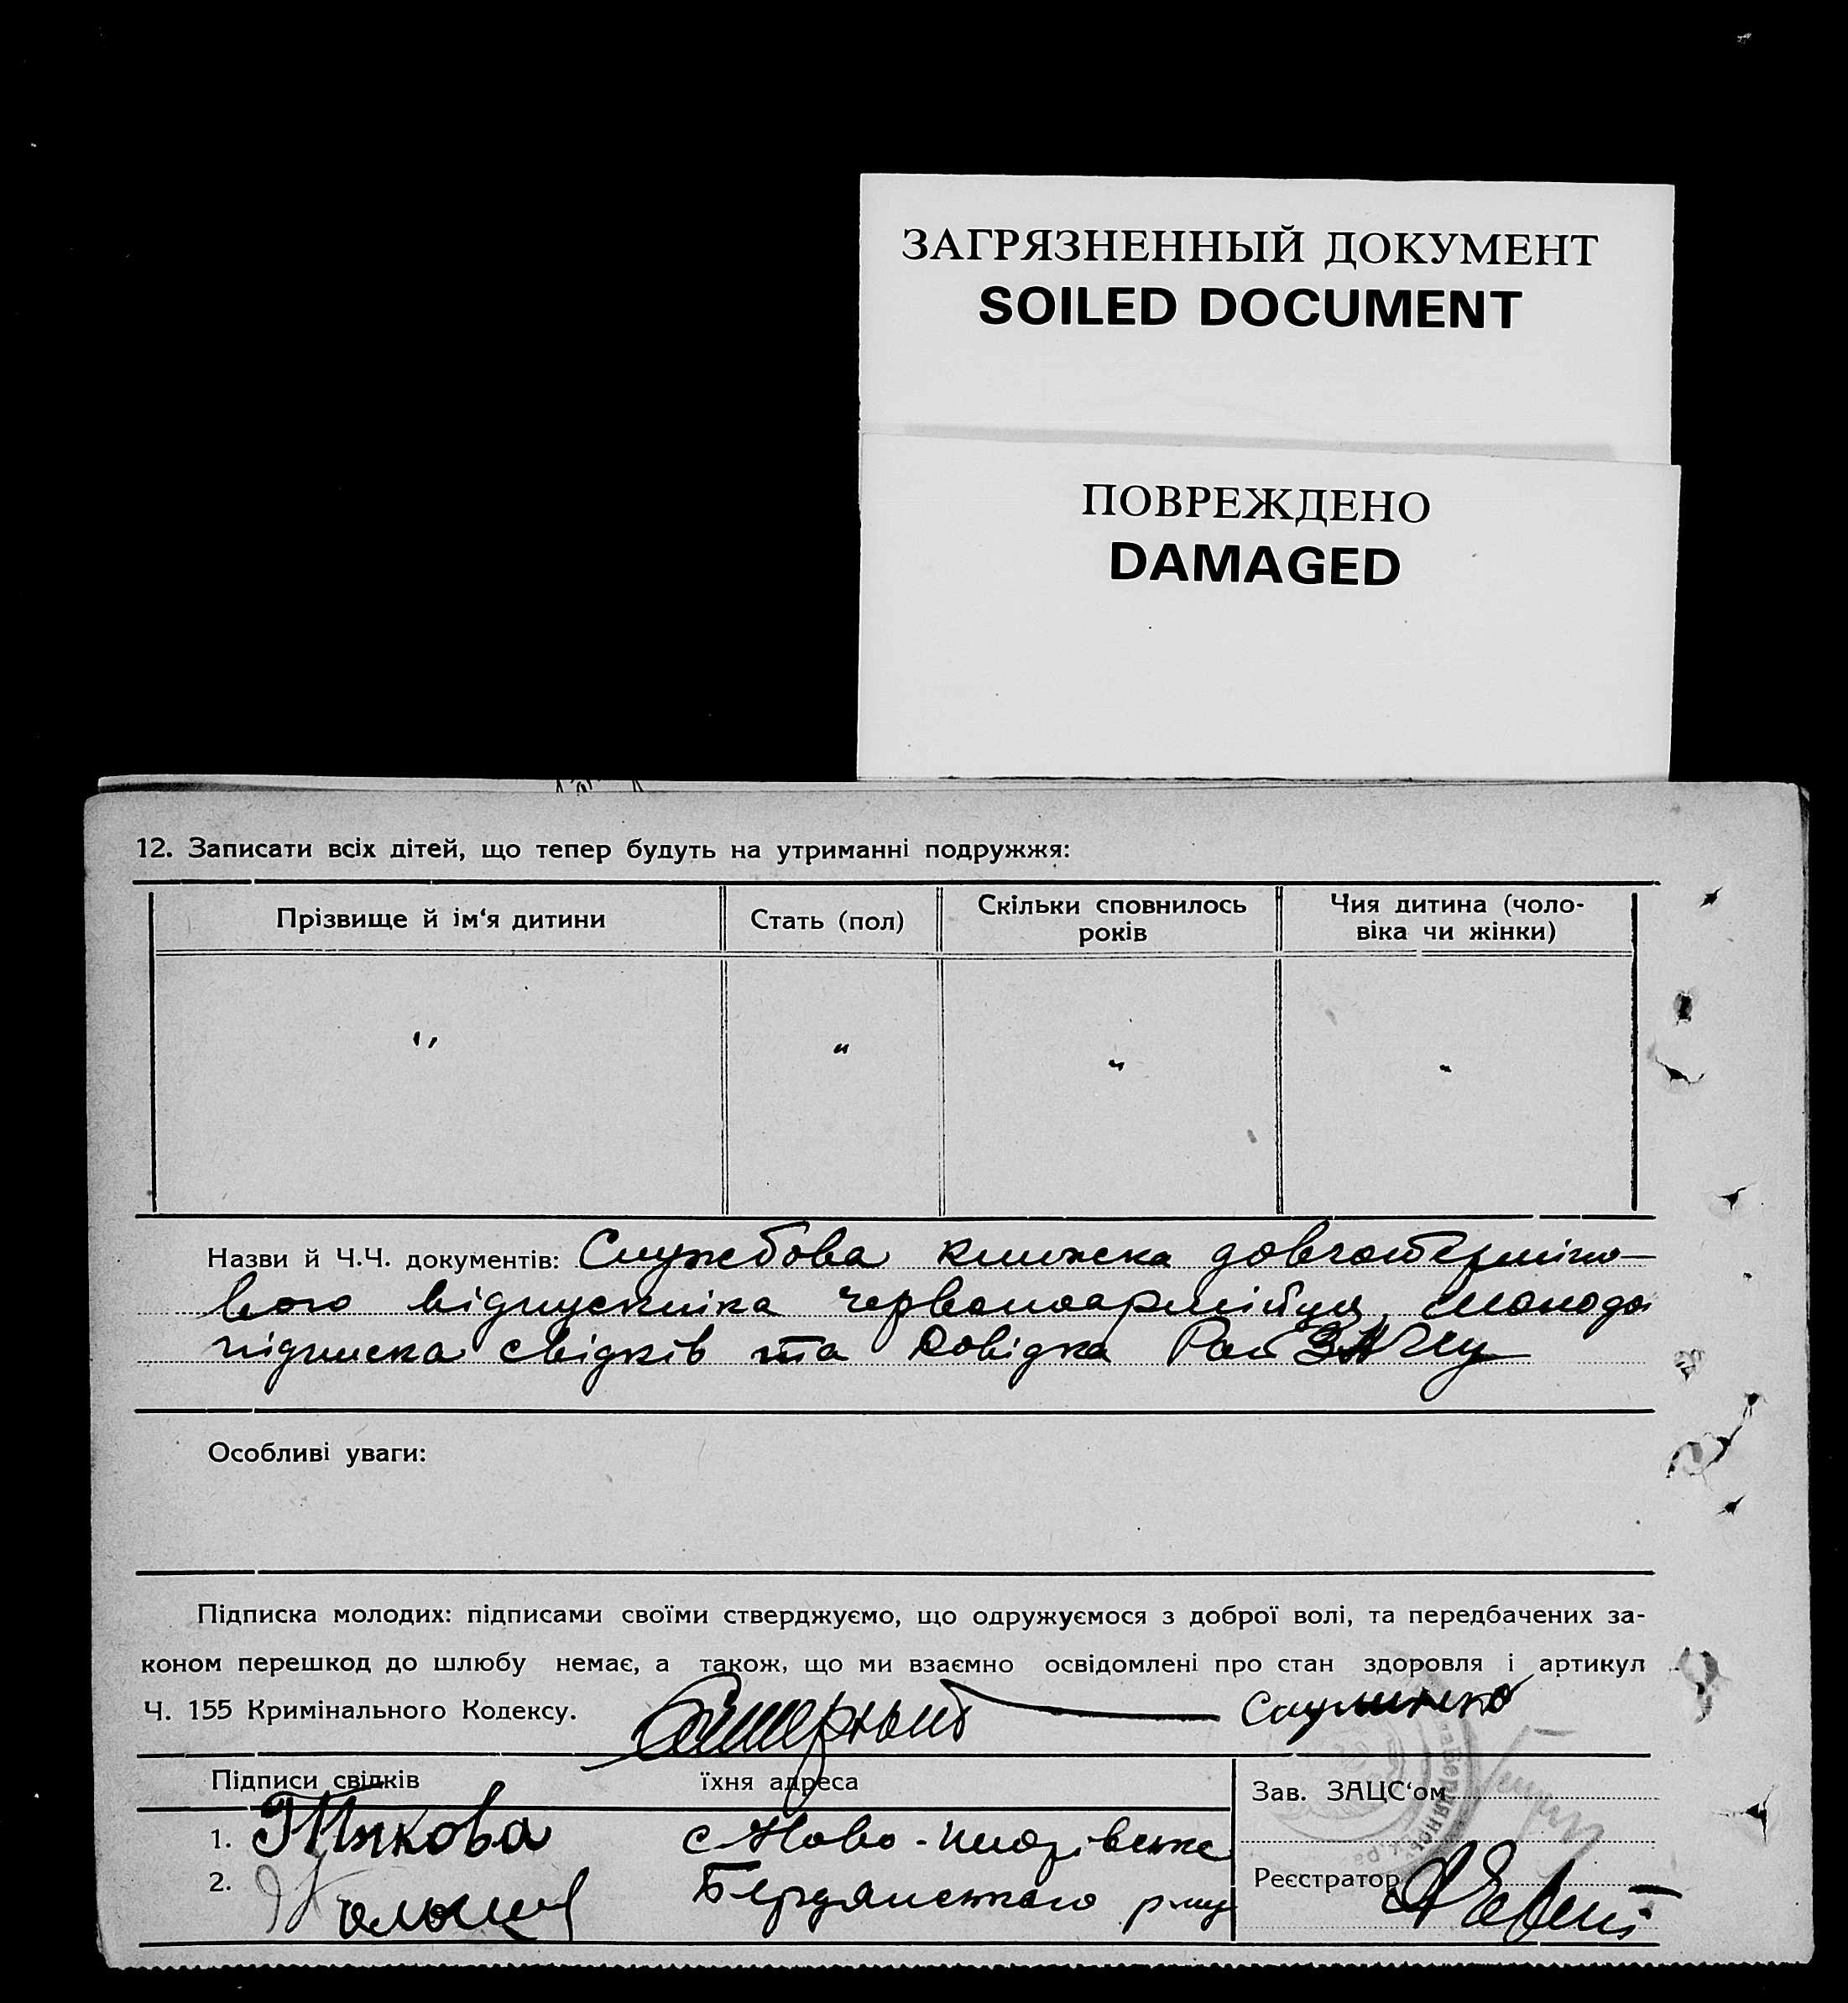 ЗАГРЯЗНЕННЫЙ ДОКУМЕНТ
SOILED DOCUMENT
ПОВРЕЖДЕНО
DAMAGED
12. Записати всіх дітей, що тепер будуть на утриманні подружжя:
Прізвище й ім‘я дитини
Стать (пол)
Скільки сповнилось
років
Чия дитина (чоло-
віка чи жінки)
" " " "
Назви й Ч.Ч. документів: Служебова книжка довготерміно-
вого відпускніка червоноармійця,
підписка свідків та довідка Рай ЗАГСу
Особливі уваги:
Підписка молодих: підписами своїми стверджуємо, що одружуємося з доброї волі, та передбачених за-
коном перешкод до шлюбу немає, а також, що ми взаємно освідомлені про стан здоровля і артикул
Ч. 155 Кримінального Кодексу.
Підписи свідків
їхня адреса
Зав. ЗАЦС‘ом
1. с Ново-
2. Бердянського р-ну
Реєстратор